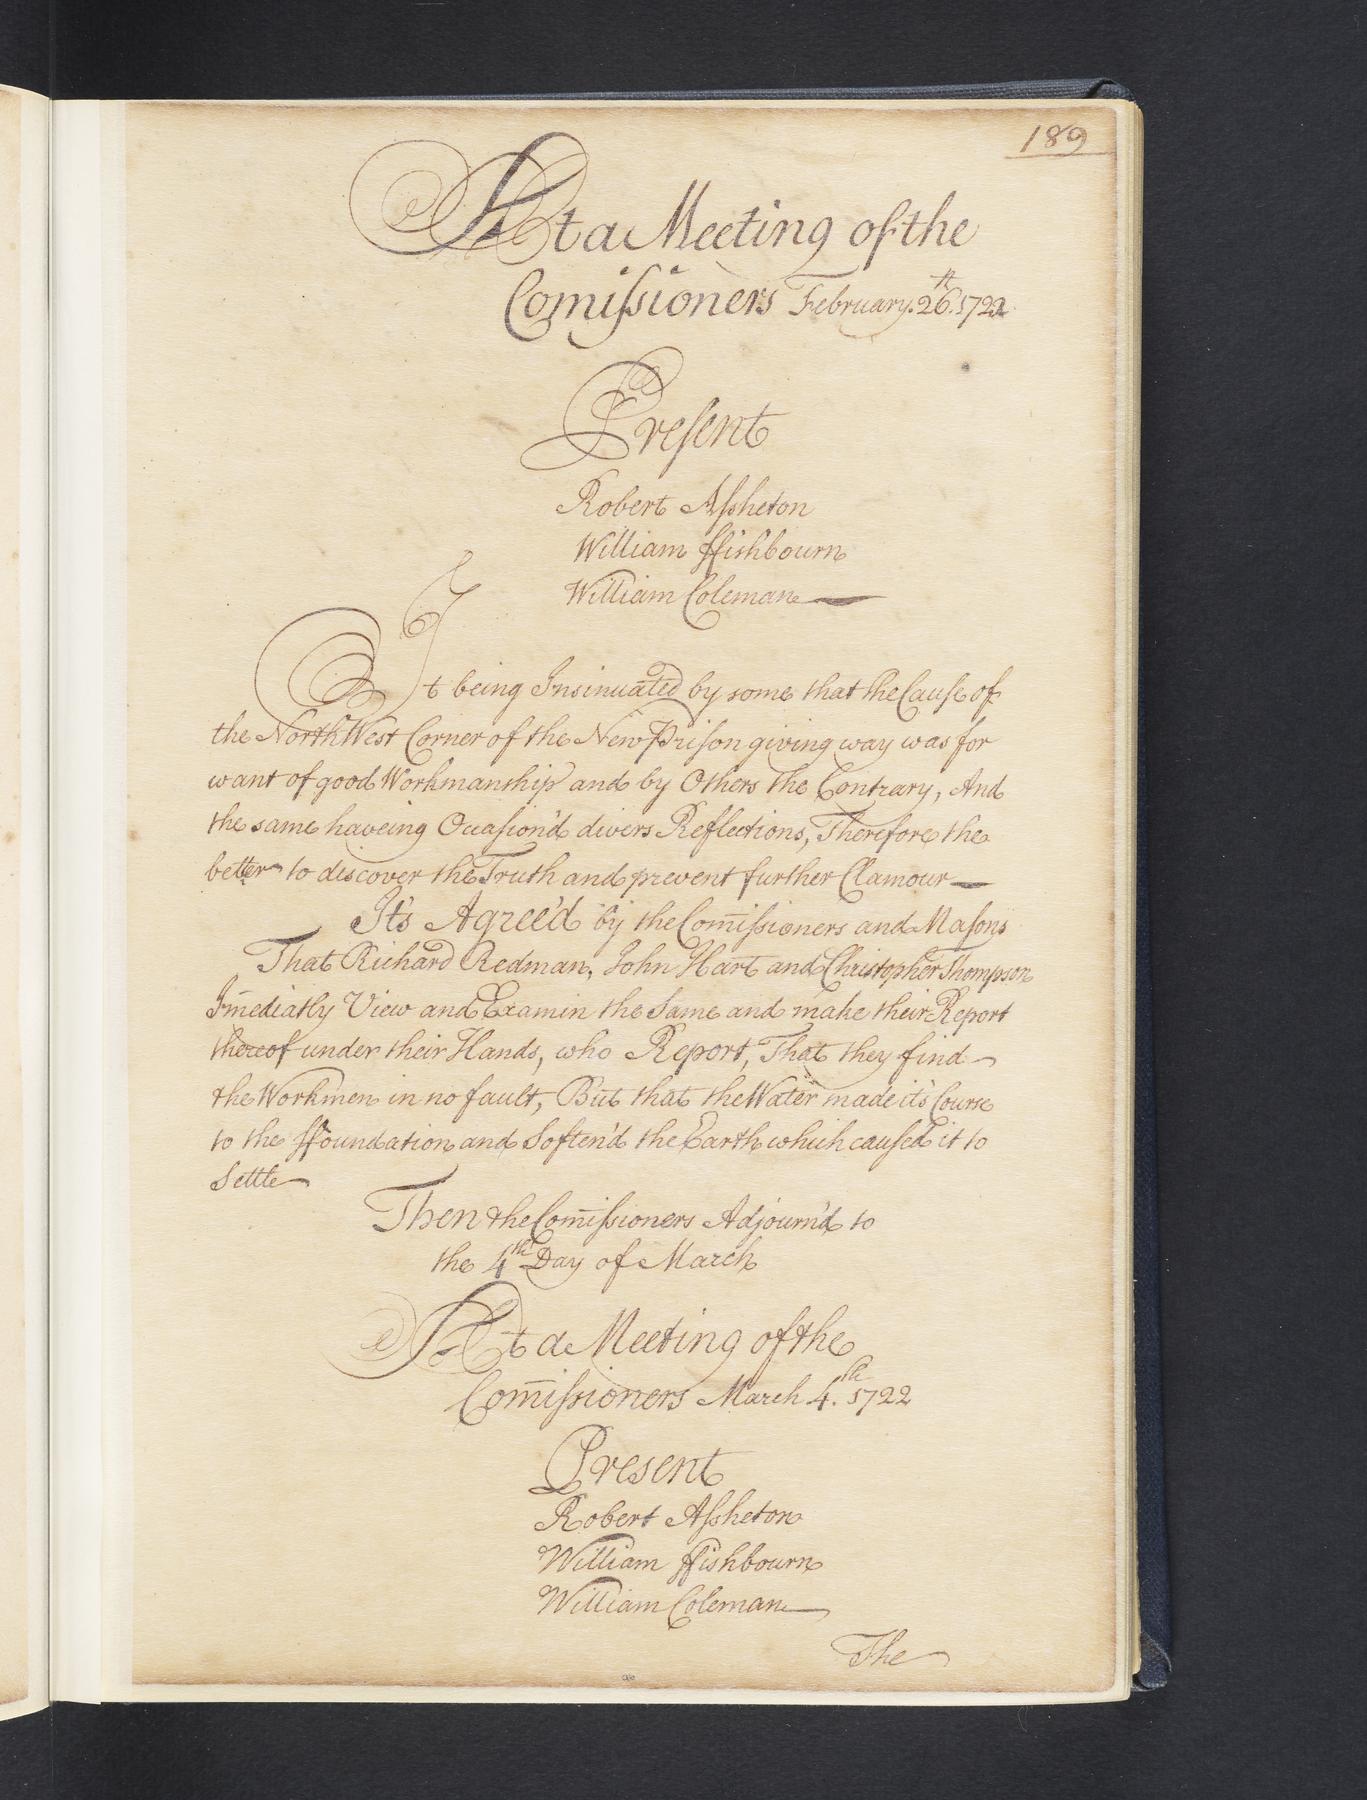 189
At a Meeting of the
Com̄iſsioners February. 26.th 1722
Preſent
Robert Aſsheton
William ffishbourn
William Coleman
It being Insinuated by some that the Cauſe of
the North West Corner of the New Priſon giving way was for
want of good Workmanship and by Others the Contrary, And
the same haveing Occaſion'd divers Reflections, Therefore the
better to discover the Truth and prevent further Clamour
It's Agree'd by the Com̄iſsioners and Maſons
That Richard Redman, John Hart and Christopher Thompson
Im̄ediatly View and Examin the Same and make their Report
thereof under their Hands, who Report, That they find
the Workmen in no fault, But that the Water made it's Course
to the ffoundation and Soften'd the Earth which cauſed it to
Settle
Then the Com̄iſsioners Adjourn'd to
the 4th Day of March
At a Meeting of the
Com̄iſsioners March 4.th 1722
Present
Robert Aſsheton
William ffishbourn
William Coleman
The